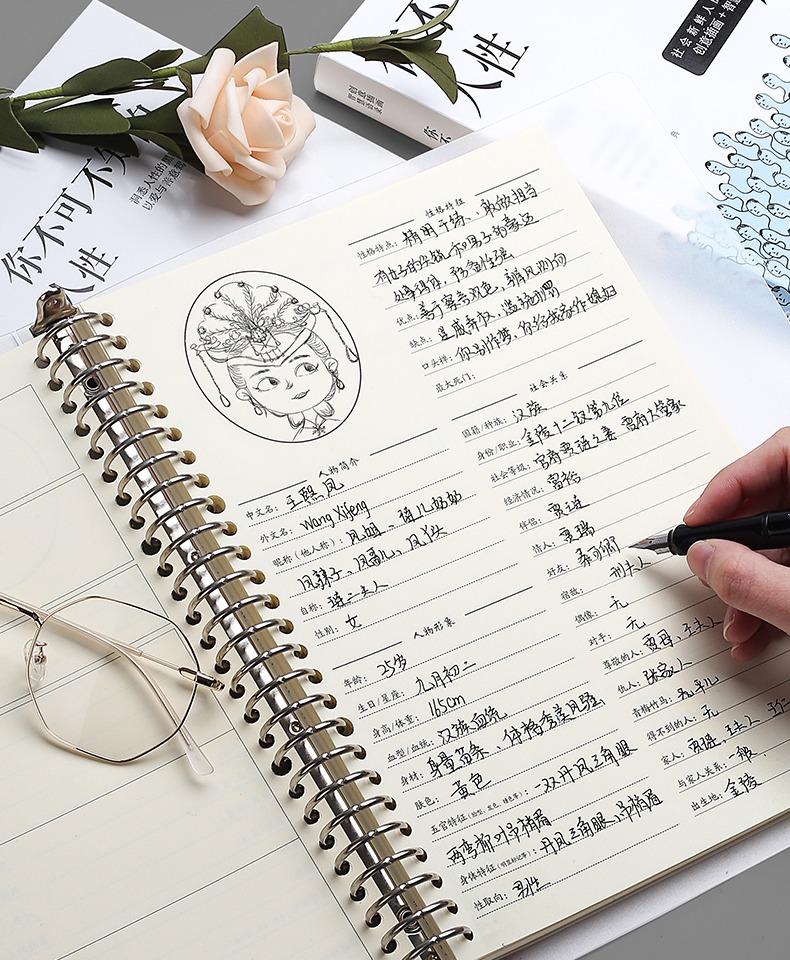 你不可不知
人性
洞悉人性的黑
以爱与善意
人性
创意插画
社会新鲜人
创意插画+智
性格特征
性格特点：精明干练、敢做敢当
优点：善于察言观色，
缺点：
口头禅：你别作声，
最大死门：
人物简介
中文名：王熙凤
外文名：Wang Xifeng
昵称（他人称）：凤姐、琏儿奶奶
凤辣子、凤哥儿、凤丫头
自称：琏二夫人
性别：女
人物形象
年龄：25岁
生日/星座：九月初二
身高/体重：165cm
血型/血统：汉族血统
身材：身量苗条、体格风骚
肤色：黄色
五官特征（脸型、发色、瞳色等）：一双丹凤三角眼
两弯柳叶吊梢眉
身体特征（明显标记等）：丹凤三角眼、吊梢眉
性取向：男性
社会关系
国籍/种族：汉族
身份/职业：金陵十二钗第九位
社会等级：官府贾琏之妻 贾府大管家
经济情况：富裕
伴侣：贾琏
情人：贾瑞
好友：秦可卿
宿敌：邢夫人
偶像：无
对手：无
尊敬的人：贾母、王夫人
仇人：张家人
青梅竹马：
得不到的人：无
家人：贾琏、王夫人 王仁
与家人关系：一般
出生地：金陵